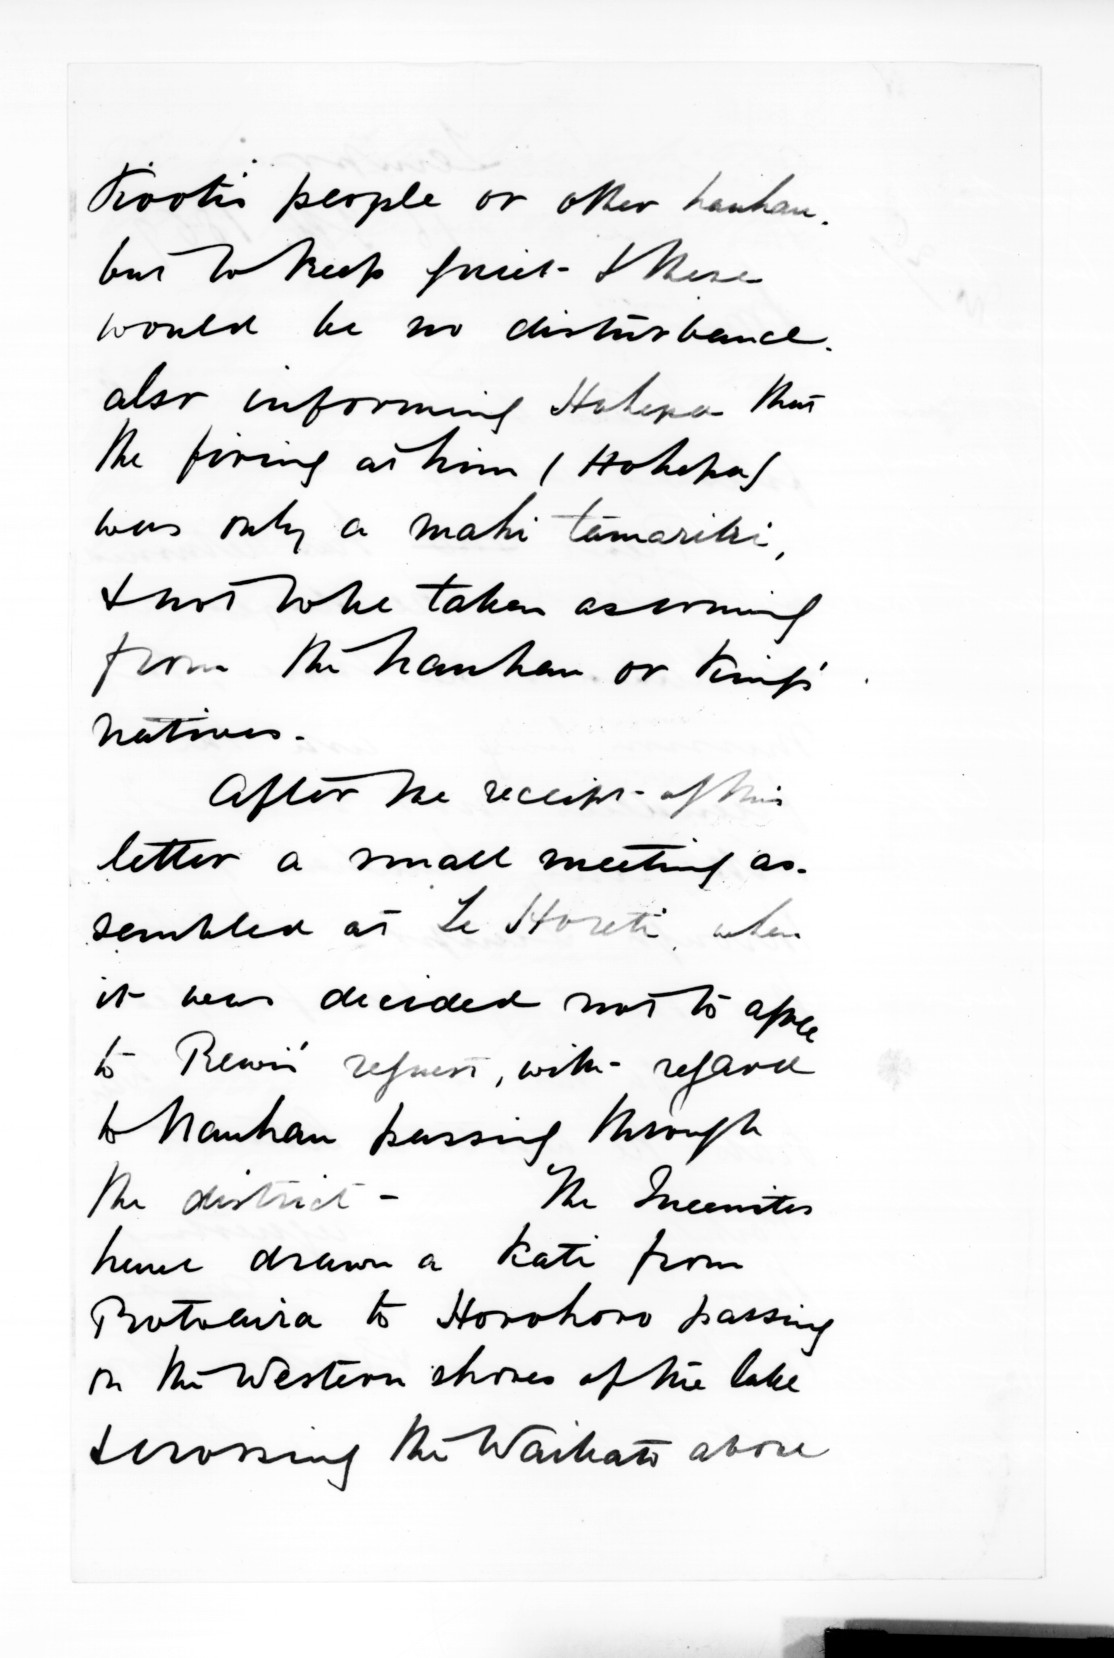 Kooti's people or other hauhau.
but to keep quiet - & there
would be no disturbance.
also informing Hohepa that
the firing at him (Hohepa)
was only a mahi tamariki,
& not to be taken as coming
from the hauhau or King's
natives.
After the receipt - of this
letter a small meeting as-
sembled at Te Horeti, when
it was decided not to agree
to Rewi's request, with - regard
to Hauhau passing through
the district - The Queenites
have drawn a Kati from
Rotoaira to Horohoro passing
on the Western shores of the lake
& crossing the Waikato above